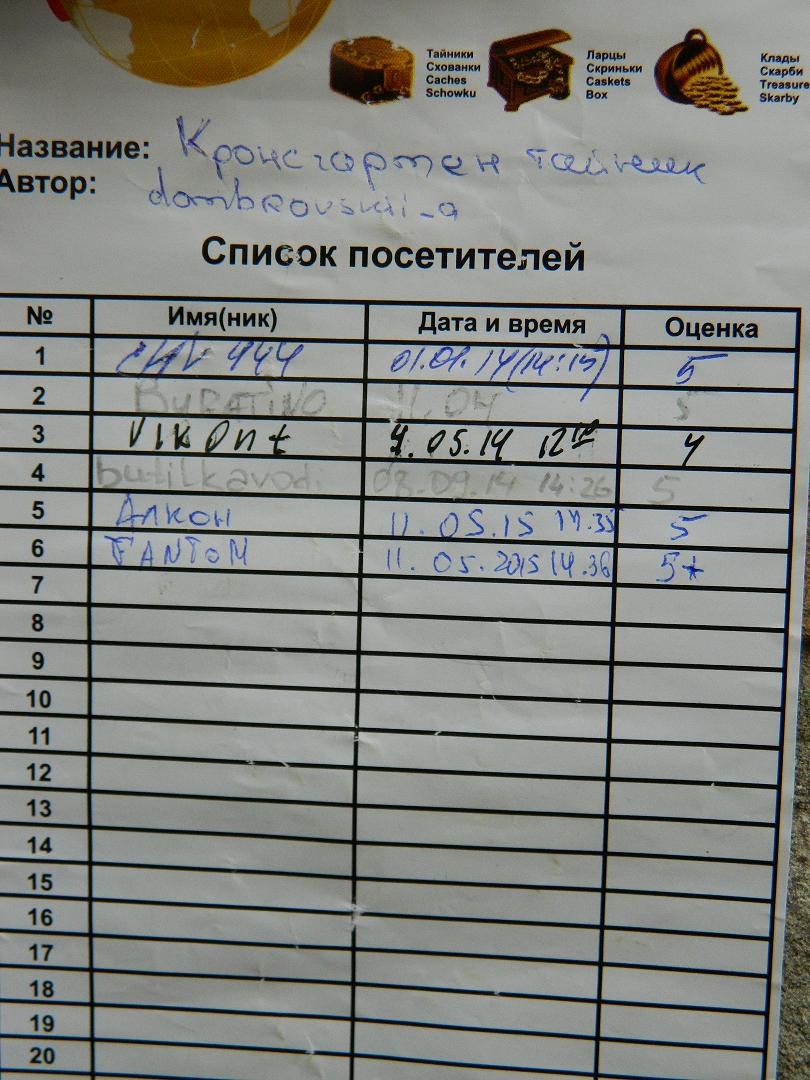 Тайники
Схованки
Caches
Schowku
Ларцы
Скриньки
Caskets
Box
Клады
Скарби
Treasure
Skarby
Название: Кронсгартен тайник
Автор: dombrovskii_a
Список посетителей
№ Имя(ник) Дата и время Оценка
1 444 01.01.14 (14:15) 5
2 BURATINO 11.04 5
3 VIKOnt 4.05.14 12 4
4 butilkavodi 08.09.14 14:26 5
5 Алкон 11.05.15 14.35 5
6 FANToM 11.05.2015 14.36 5+
7
8
9
10
11
12
13
14
15
16
17
18
19
20